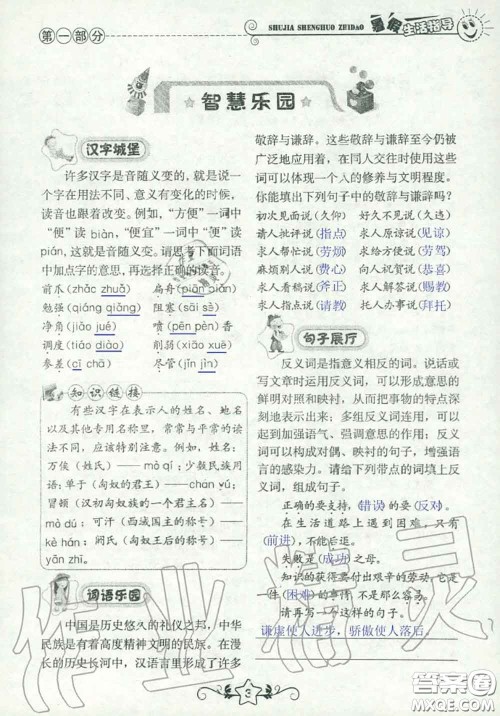 第一部分
SHUJIA SHENGHUO ZHIDAO
暑假生活指导
智慧乐园
汉字城堡
许多汉字是音随义变的，就是说一
个字在用法不同、意义有变化的时候，
读音也跟着改变。例如，“方便”一词中
“便”读 biàn，“便宜”一词中“便”读
pián，这就是音随义变。请思考下面词语
中加点字的意思，再选择正确的读音。
前爪（zhǎo zhuǎ） 扁舟（piān biǎn）
勉强（qiáng qiǎng） 阻塞（sāi sè）
净角（jiǎo jué） 喷（pēn pèn）香
调度（tiáo diào） 削弱（xiāo xuē）
参差（cī chā） 尽管（jǐn jìn）
知识链接
有些汉字在表示人的姓名、地名
以及其他专用名称里，常常与平常的读
法不同，应该特别注意。例如，姓名：
万俟（姓氏）——mò qí；少数民族用
语：单于（匈奴的君王）——chán yú；
冒顿（汉初匈奴族的一个君主名）——
mò dú；可汗（西域国主的称号）——
kè hán；阏氏（匈奴王后的称号）——
yān zhī。
词语乐园
中国是历史悠久的礼仪之邦，中华
民族是有着高度精神文明的民族。在漫
长的历史长河中，汉语言里形成了许多
敬辞与谦辞。这些敬辞与谦辞至今仍被
广泛地应用着，在同人交往时使用这些
词可以体现一个人的修养与文明程度。
你能填出下列句子中的敬辞与谦辞吗？
初次见面说（久仰） 好久不见说（久违）
请人批评说（指点） 求人原谅说（见谅）
求人帮忙说（劳烦） 求人方便说（劳驾）
麻烦别人说（费心） 向人祝贺说（恭喜）
求人看稿说（斧正） 求人解答说（赐教）
求人指点说（请教） 托人办事说（拜托）
句子展厅
反义词是指意义相反的词。说话或
写文章时运用反义词，可以形成意思的
鲜明对照和映衬，从而把事物的特点深
刻地表示出来；多组反义词连用，可以
起到加强语气、强调意思的作用。反义词
可以构成对偶、映衬的句子，可以增强语
言的感染力。请给下列带点的词填上反义
词，组成句子。
正确的要支持，（错误）的要（反对）。
在生活道路上遇到困难，只有
（前进），不能后退。
失败是（成功）之母。
知识的获得要付出艰辛的劳动，它是
一件（困难）的事情，不可能轻而易举。
请再写一个这样的句子。
谦虚使人进步，骄傲使人落后。
3
作业精灵
答案圈
MXQE.COM